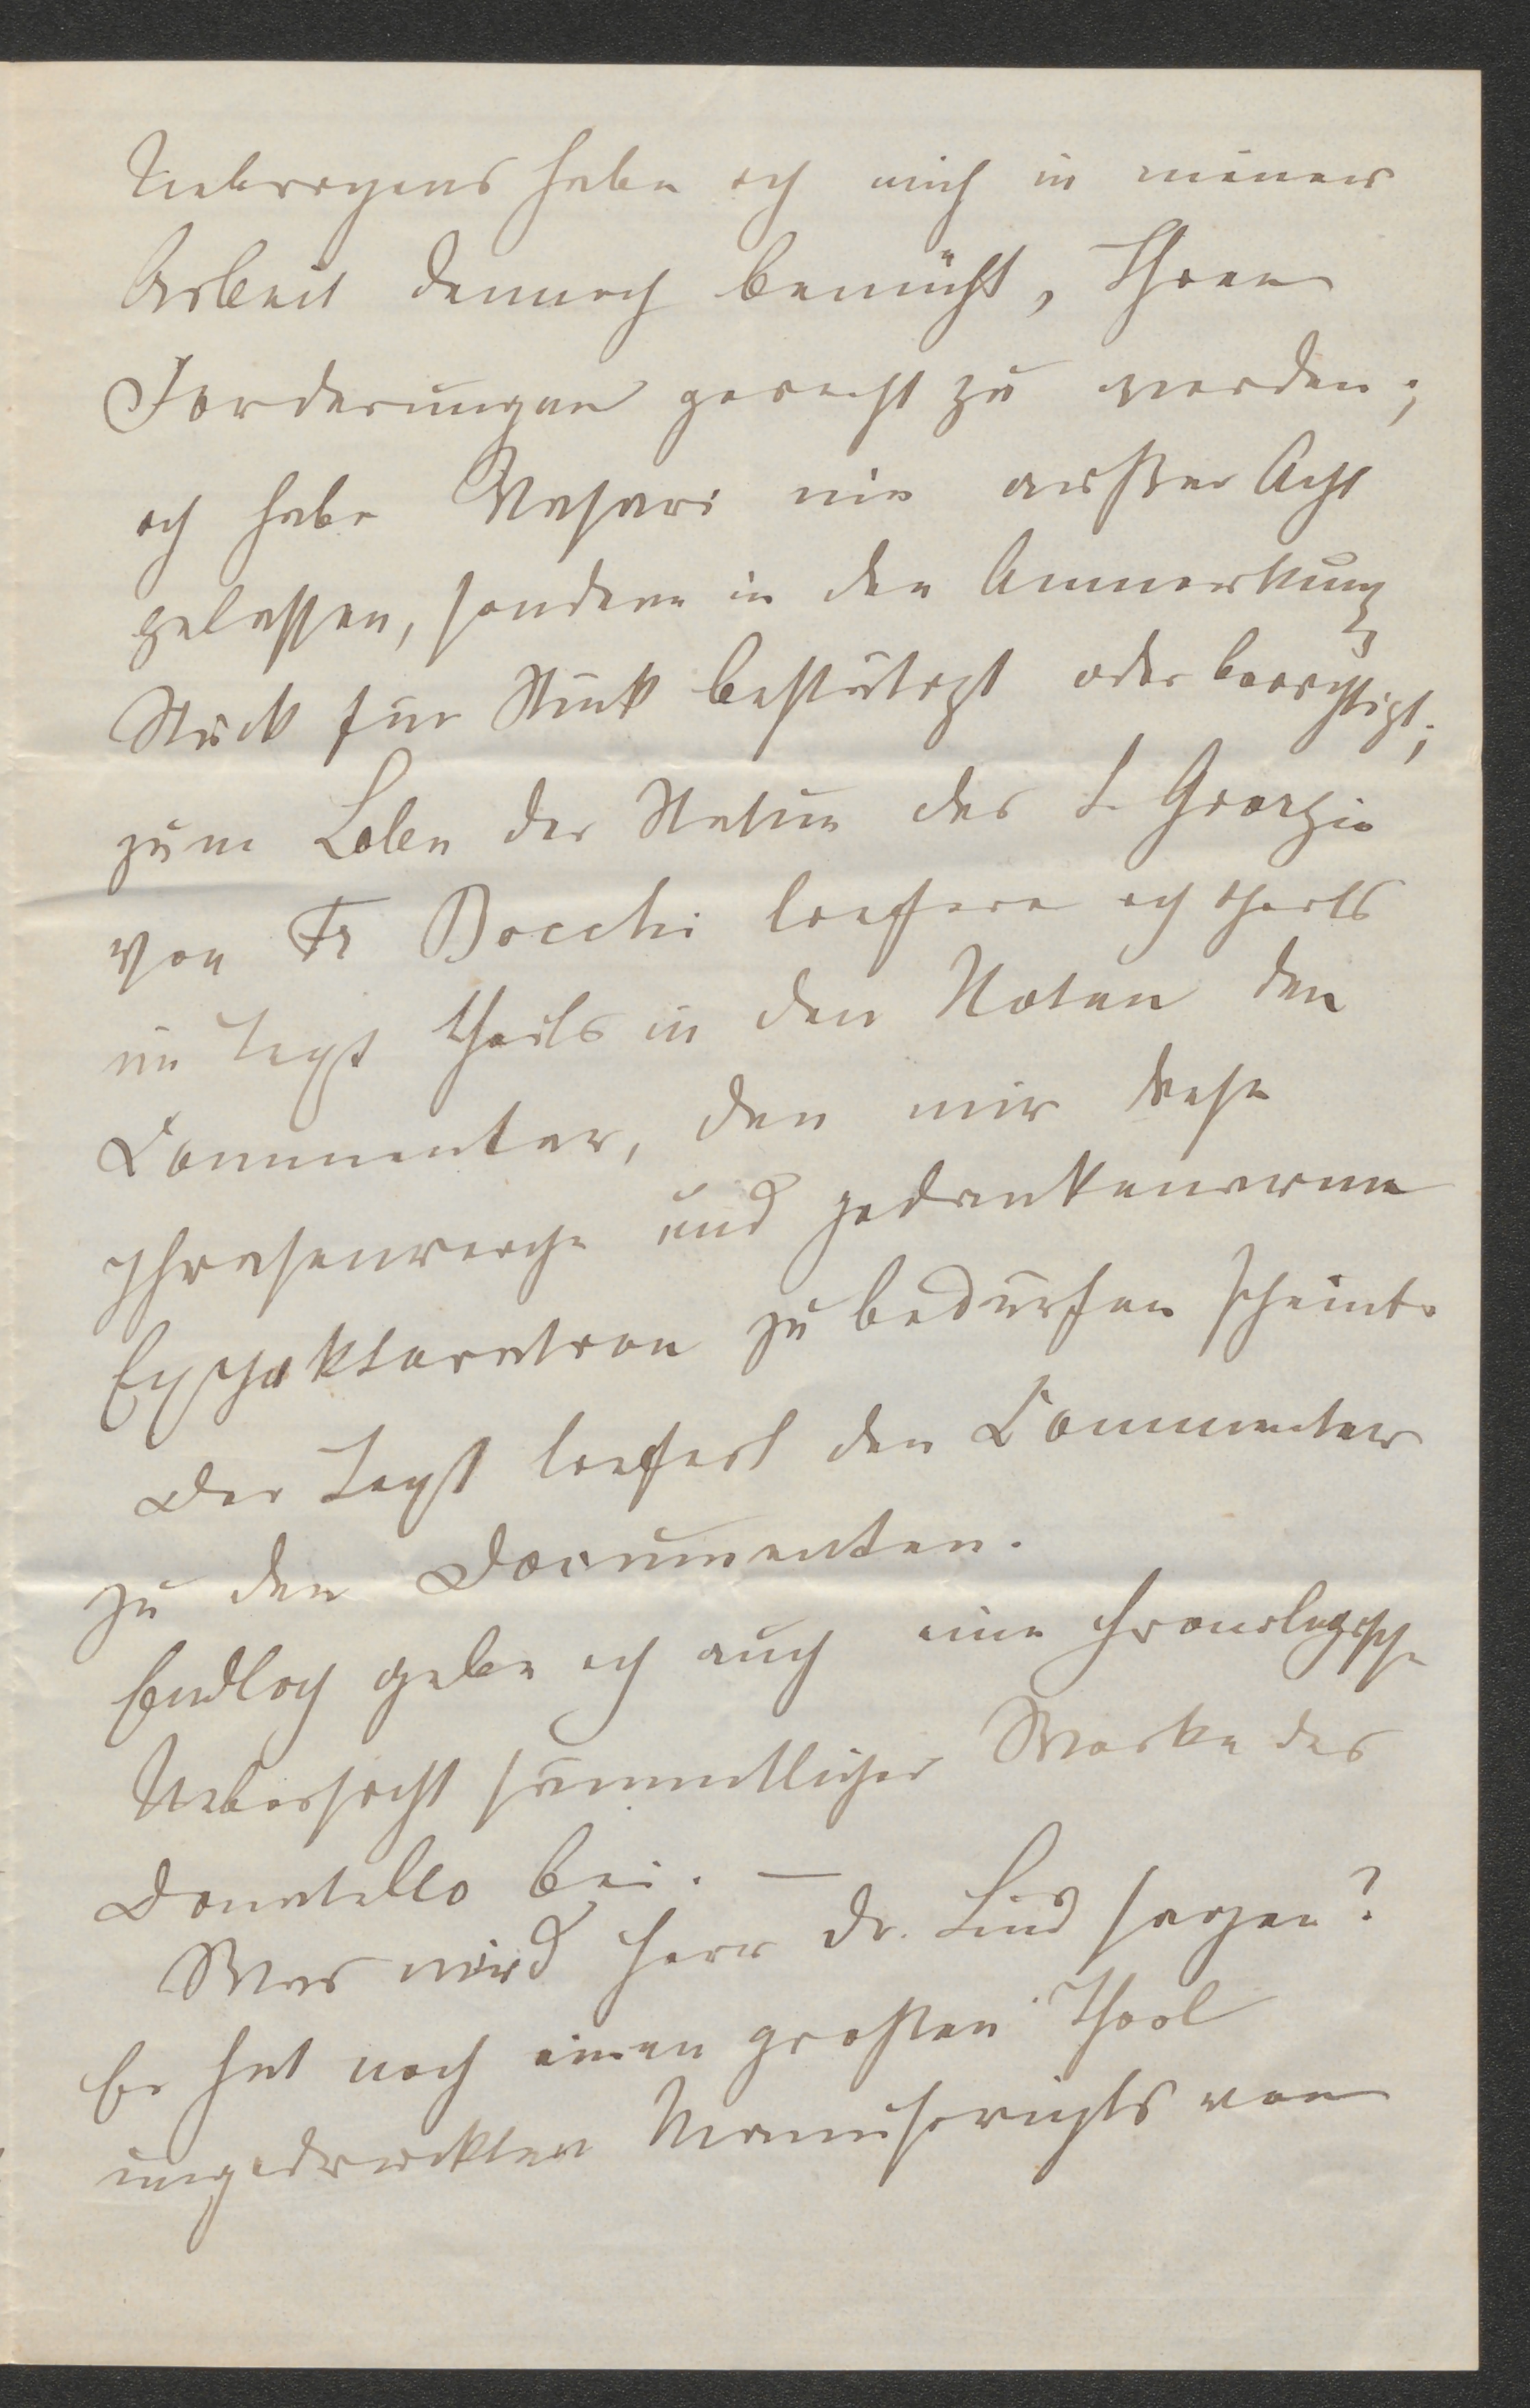 Uebrigens habe ich mich in meiner
Arbeit dennoch bemüht, Ihren
Forderungen gerecht zu werden;
ich habe Vasari nie außer Acht
gelassen, sondern in den Anmerkung
Stück für Stück bestätigt oder berichtigt;
zum Lobe der Statue des S. Giorgio
von Fr Bocchi liefere ich theils
im Text theils in den Noten den
Commentar, den mir diese
phrasenreiche und gedankenarme
Expektoration zu bedürfen scheint.
Der Text liefert den Commentar
zu den Documenten.
Endlich gebe ich auch eine chronologische
Uebersicht sämmtlicher Werke des
Donatello bei. —
Was wird Herr Dr. Lind sagen?
Er hat noch einen großen Theil
ungedruckten Manuscripts von